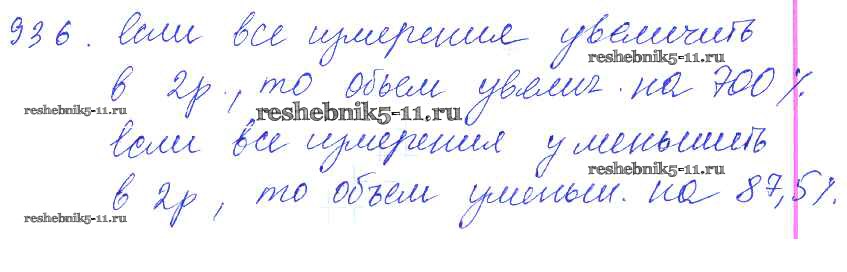 936. Если все измерения увеличить
reshebnik5-11.ru
в 2р., то объем увелич. на 700%.
reshebnik5-11.ru
reshebnik5-11.ru
Если все измерения уменьшить
reshebnik5-11.ru
в 2р, то объем уменьш. на 87,5%.
reshebnik5-11.ru